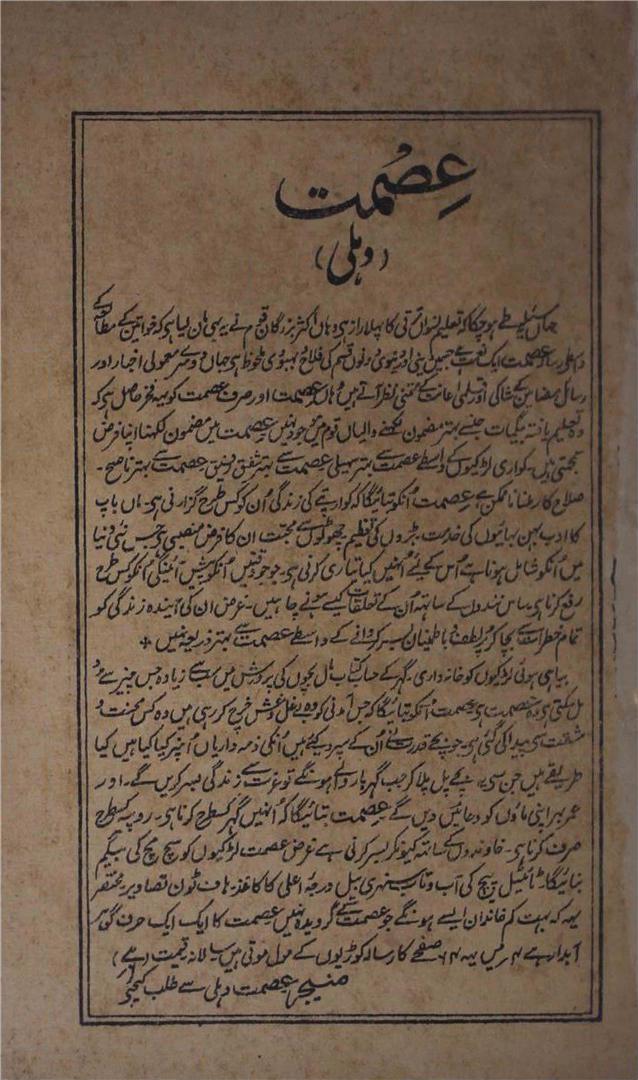 عِصمت
(دہلی)
جہاں یہ طے ہو چکا کہ تعلیم نسواں ترقی کا پہلا راز ہی وہاں اکثر بزرگان قوم نے یہ بھی مان لیا ہی کہ خواتین کے مطالعہ کے
رسالہ عصمت ایک نعمت ہے جسمیں دینی اور دنیوی دونوں قسم کی فلاح و بہبودی ملحوظ ہی جہاں دوسرے معمولی اخبار اور
رسائل مضامین کے شاکی اور قلمی اعانت کے متمنی نظر آتے ہیں وہاں عصمت اور صرف عصمت کو یہ فخر حاصل ہی کہ
وہ تعلیم یافتہ بیگمات جنسے بہتر مضمون لکھنے والیاں قوم میں موجود نہیں عصمت میں مضمون لکھنا اپنا فرض
سمجھتی ہیں۔ کنواری لڑکیوں کے واسطے عصمت سے بہتر سہیلی عصمت سے بہتر شفیق رفیق عصمت سے بہتر ناصح۔
صلاح کار ملنا ناممکن ہے عصمت انکو بتائیگا کہ کوارپتے کی زندگی اُن کو کس طرح گزارنی ہی۔ ماں باپ
کا ادب بہن بھائیوں کی خدمت بڑوں کی تعظیم چھوٹوں سے محبت ان کا فرض منصبی ہی جس نئی دنیا
میں اُنکو شامل ہونا ہے اُس کے لئے اُنہیں کیا تیاری کرنی ہی۔ جو جو دقتیں اُنکو پیش آئینگی اُنکو کس طرح
رفع کرنا ہی۔ ساس نندوں کے ساتھ اُن کے تعلقات کیسے ہونے چاہیں۔ غرض ان کی آیندہ زندگی کو
تمام خطرات سے بچا کر پُرلطف و باطمینان بسر کروانے کے واسطے عصمت سے بہتر ذریعہ نہیں
بیاہی ہوئی لڑکیوں کو خانہ داری۔ گھر کے حساب کتاب بال بچوں کی پرورش میں سب سے زیادہ جس چیز سے مدد
مل سکتی ہی وہ عصمت ہی عصمت اُنکو بتائیگا کہ جس آمدنی کو وہ بے غل و غش خرچ کر رہی ہیں وہ کس محنت و
مشقت سی پیدا کی گئی ہی۔ جو بچے قدرت نے اُن کے سپرد کیے ہیں اُنکی ذمہ داریاں اُنپر کیا کیا ہیں کیا
طریقے ہیں جن سی یہ بچے پل پلا کر جب گھربار والے ہونگے تو عزت سے زندگی بسر کریں گے۔ اور
عمر بھر اپنی ماؤں کو دعائیں دیں گے عصمت بتائیگا کہ اُنہیں گھر کسطرح کرنا ہی۔ روپیہ کسطرح
صرف کرنا ہی۔ خاوندوں کے ساتھ کیونکر بسر کرنی ہے غرض عصمت لڑکیوں کو سچ مچ کی بیگم
بنائیگا۔ ٹائیٹل پیج کی آب و تاب سنہری بیل درجہ اعلی کا کاغذ۔ ہاف ٹون تصاویر۔ مختصر
یہہ کہ بہت کم خاندان ایسے ہونگے جو عصمت کے گرویدہ نہیں عصمت کا ایک ایک حرف گوہر
آبدار ہے ۴ میں یہہ ۶۴ صفحے کا رسالہ کوڑیوں کے مول موتی ہیں سالانہ قیمت
منیجر عصمت دہلی سے طلب کیجئے